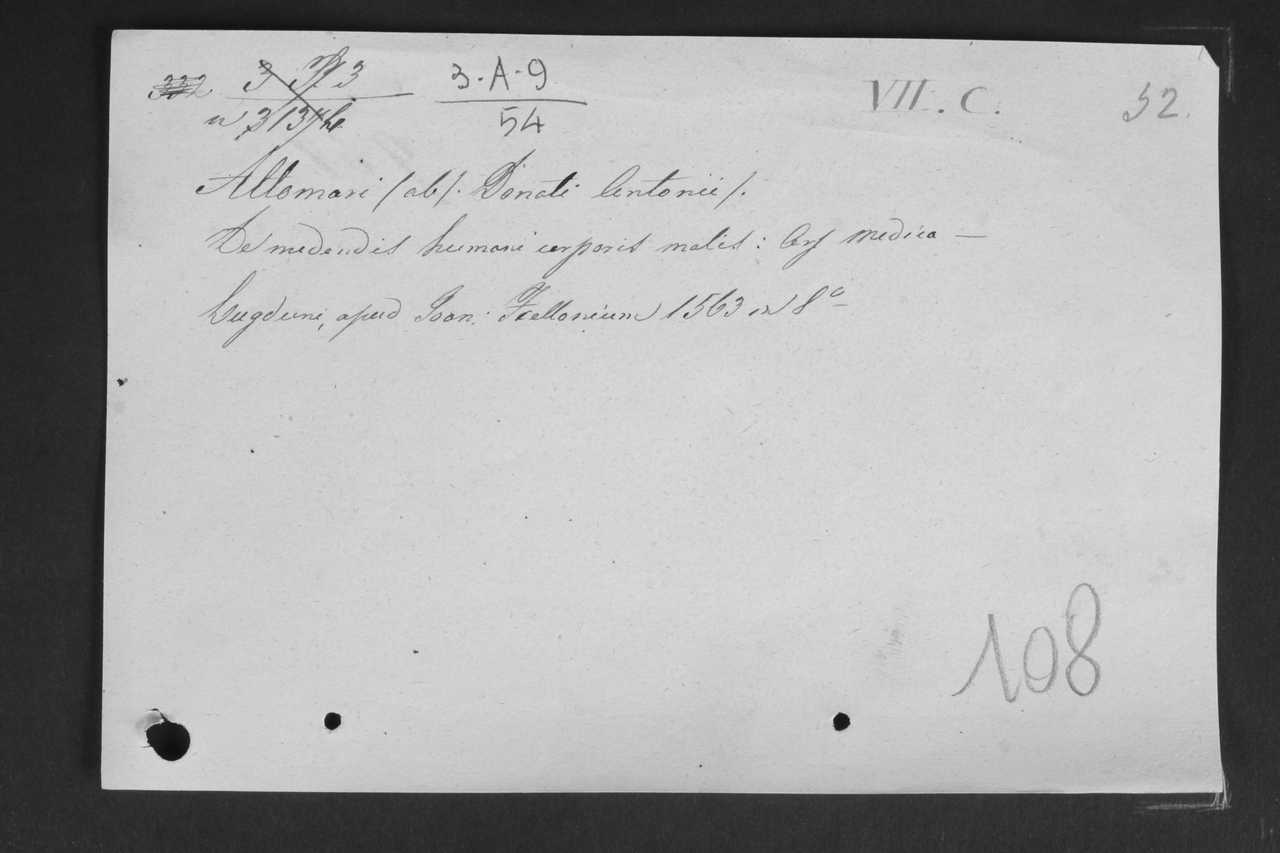 3-A-9
54
VII. C. 52.
Altomari (ab). Donati Antonii).
De medendis humani corporis malis: Ars medica —
Lugduni, apud Joan: Frellonium 1563 in 8º
108